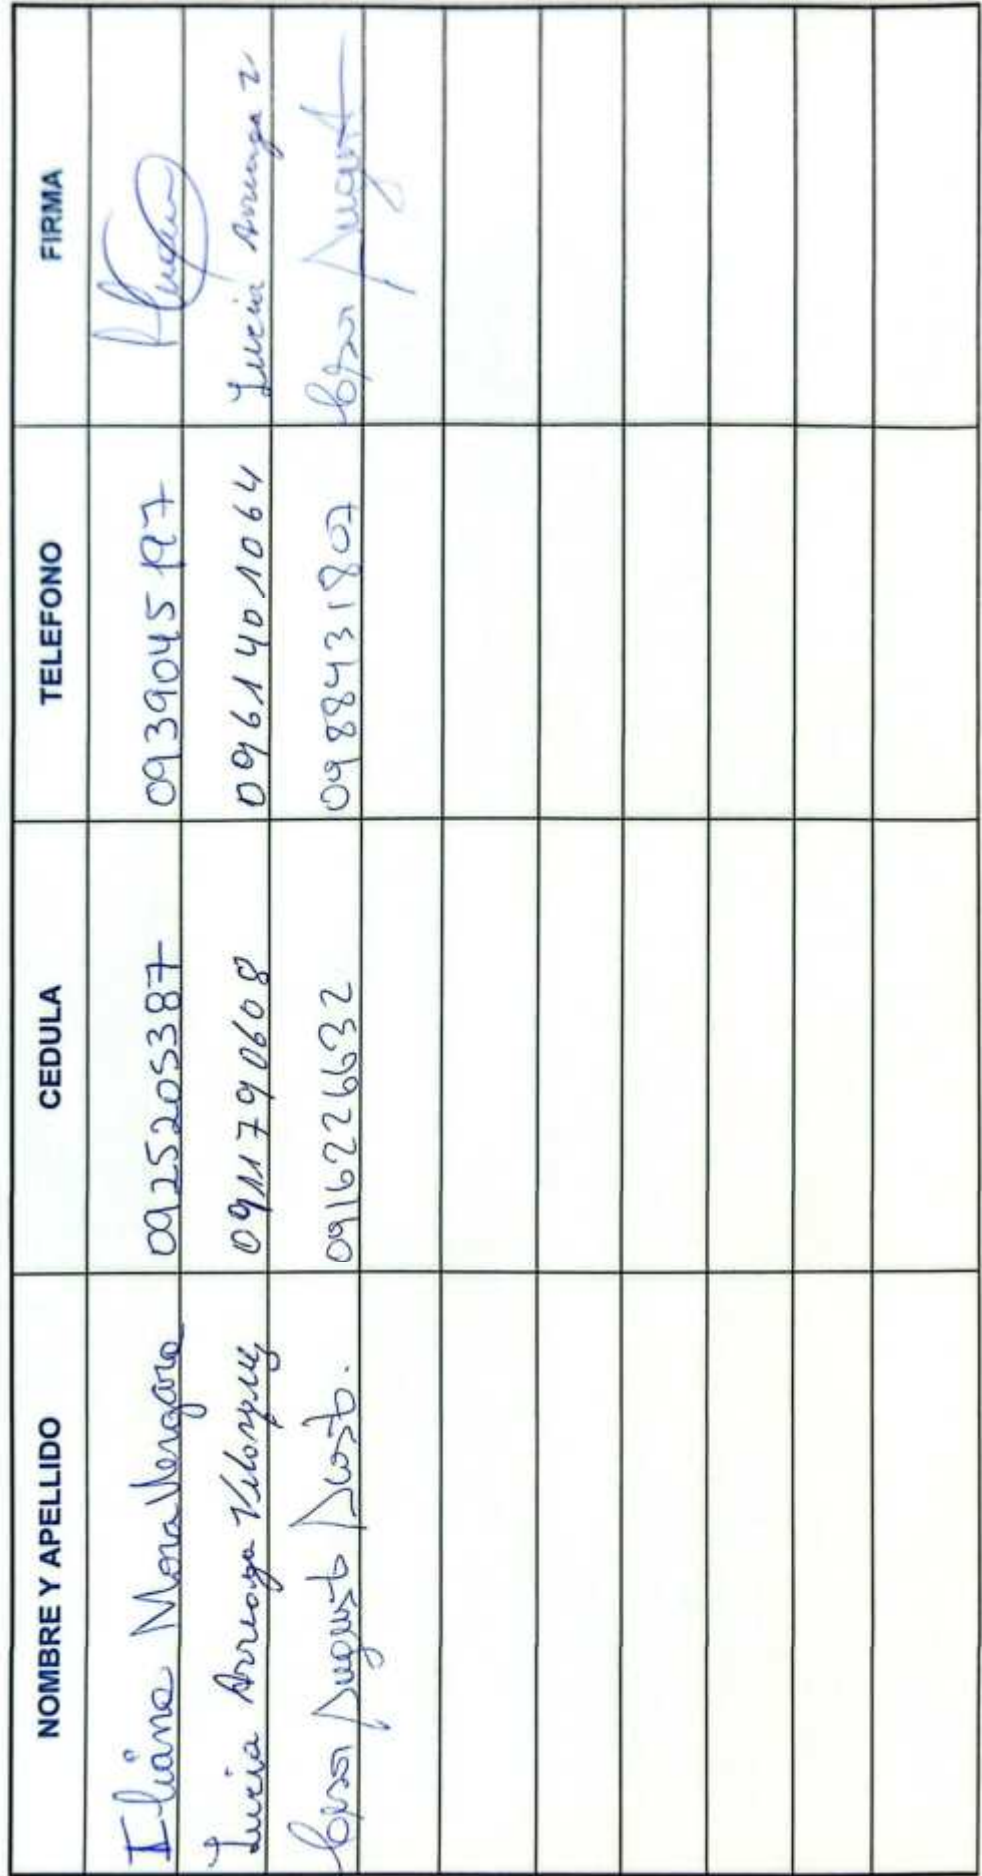 NOMBRE Y APELLIDO CEDULA TELEFONO FIRMA
Iliana Mora Vergara 0925205387 0939045197
Lucia Arreaga 0911790608 0961401064 Lucia Arreaga
Cesar Augusto 0916226632 0988431807 Cesar August